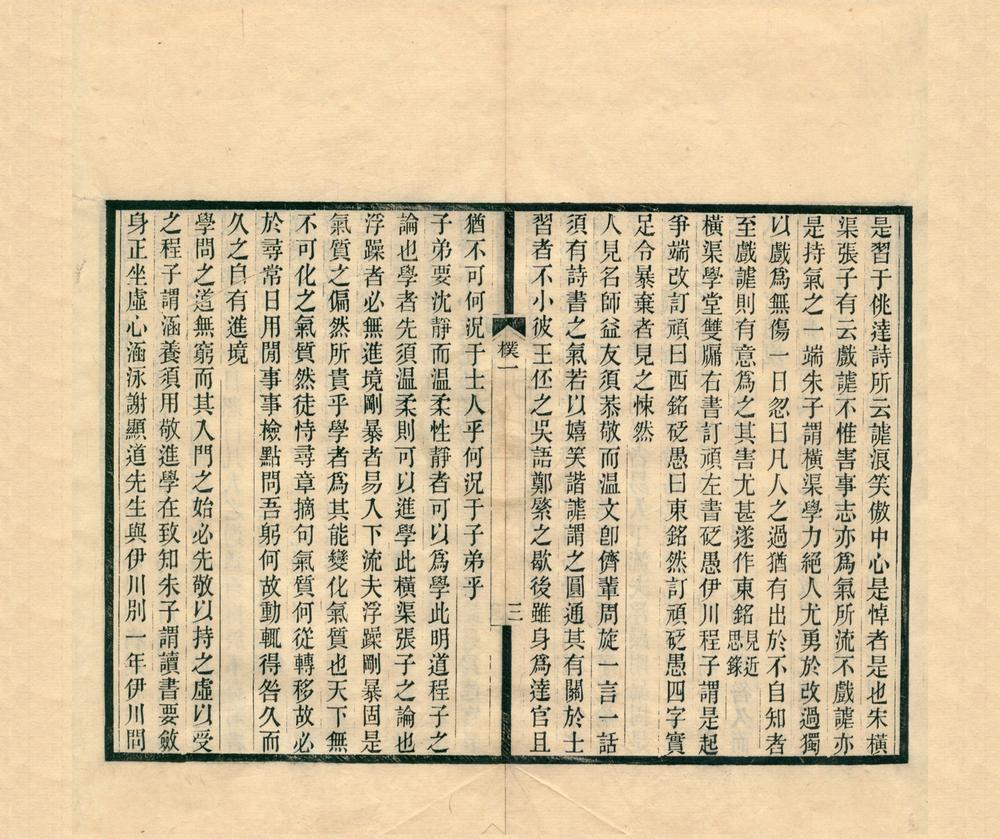 是習于佻達詩所云謔浪笑傲中心是悼者是也朱橫
渠張子有云戲謔不惟害事志亦爲氣所流不戲謔亦
是持氣之一端朱子謂橫渠學力絕人尤勇於改過獨
以戲爲無傷一日忽曰凡人之過猶有出於不自知者
至戲謔則有意爲之其害尤甚遂作東銘見近思錄
橫渠學堂雙牖右書訂頑左書砭愚伊川程子謂是起
爭端改訂頑曰西銘砭愚曰東銘然訂頑砭愚四字實
足令暴棄者見之悚然
人見名師益友須恭敬而溫文卽儕輩周旋一言一話
須有詩書之氣若以嬉笑諧謔謂之圓通其有關於士
習者不小彼王伾之吳語鄭綮之歇後雖身爲達官且
樸一
三
猶不可何況于士人乎何況于子弟乎
子弟要沈靜而溫柔性靜者可以爲學此明道程子之
論也學者先須溫柔則可以進學此橫渠張子之論也
浮躁者必無進境剛暴者易入下流夫浮躁剛暴固是
氣質之偏然所貴乎學者爲其能變化氣質也天下無
不可化之氣質然徒恃尋章摘句氣質何從轉移故必
於尋常日用閒事事檢點問吾躬何故動輒得咎久而
久之自有進境
學問之道無窮而其入門之始必先敬以持之虛以受
之程子謂涵養須用敬進學在致知朱子謂讀書要斂
身正坐虛心涵泳謝顯道先生與伊川別一年伊川問